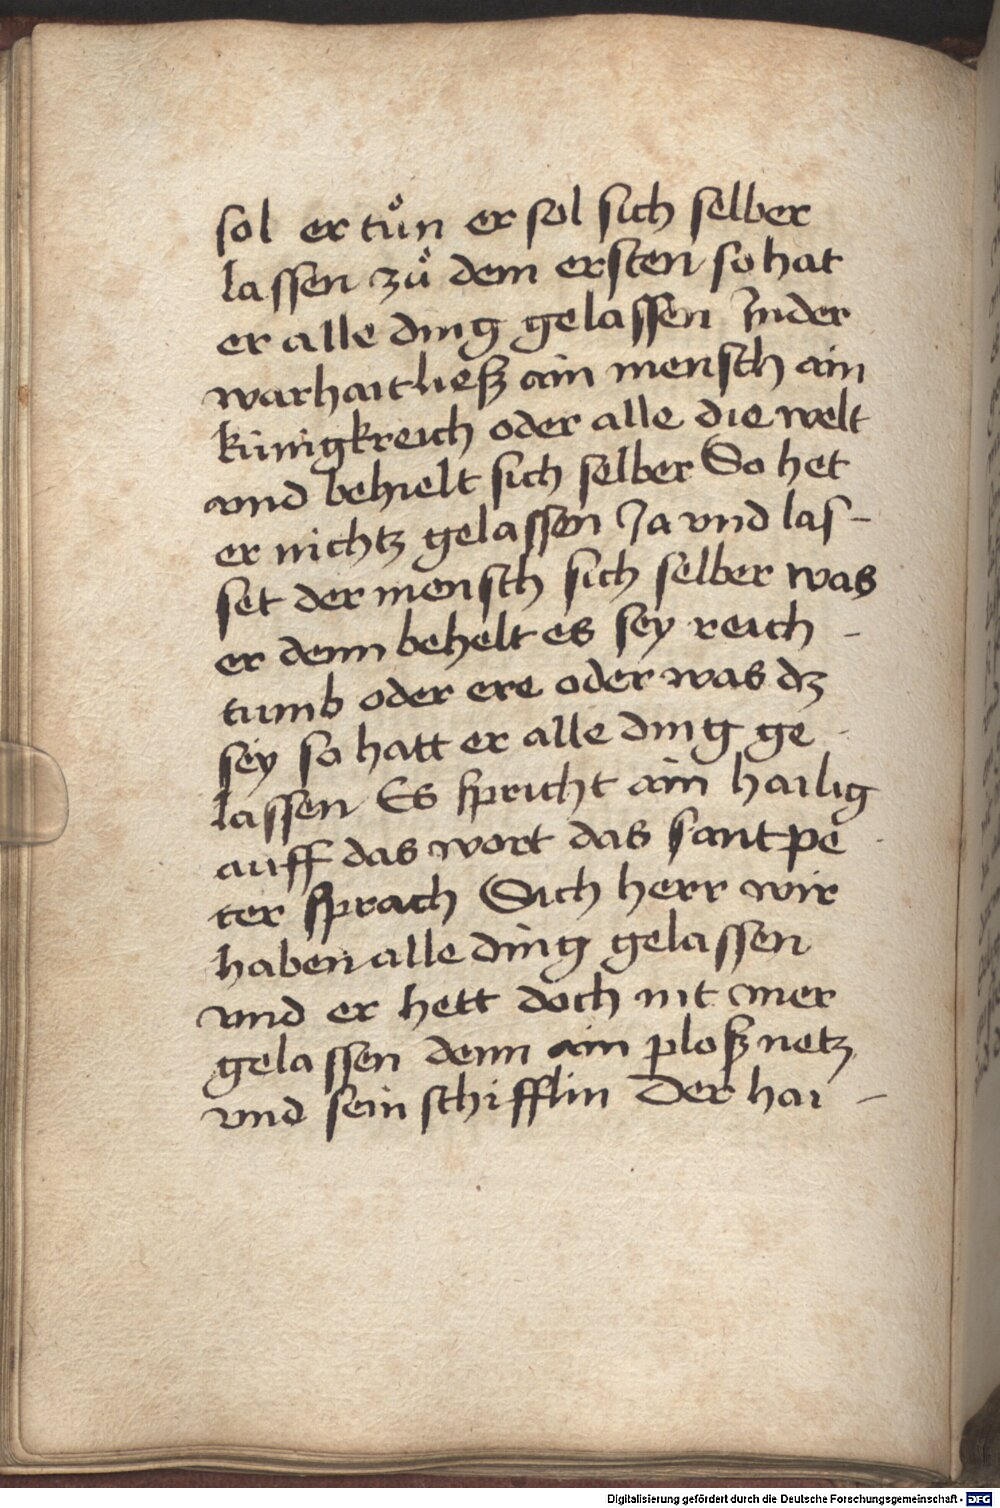 sol er tuͦn er sol sich selber
lassen zuͦ dem ersten so hat
er alle ding gelassen In der
warhait ließ ain mensch ain
künigkreich oder alle die welt
vnd behielt sich selber So het
er nichtz gelassen Ja vnd las-
set der mensch sich selber was
er denn behelt es sey reich-
tumb oder ere oder was dz
sey so hatt er alle ding ge-
lassen Es spricht ain hailig
auff das wort das sant pe-
ter sprach Sich herr wir
haben alle ding gelassen
vnd er hett doch nit mer
gelassen denn ain ploß netz
vnd sein schifflin Der hai-
Digitalisierung gefördert durch die Deutsche Forschungsgemeinschaft - DFG